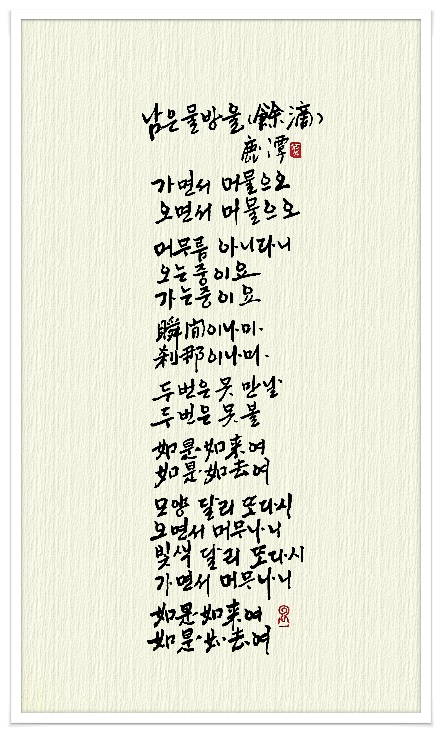 남은 물방울 (餘滴)
鹿潭
가면서 머물으오
오면서 머물으오
머무름 아니라니
오는 중이요
가는 중이요
瞬間이나미·
刹那이나미·
두번은 못 만날
두번은 못 볼
如是·如来여
如是·如去여
모양 달리 또다시
오면서 머무나니
빛색 달리 또다시
가면서 머무나니
如是·如来여
如是·如去여